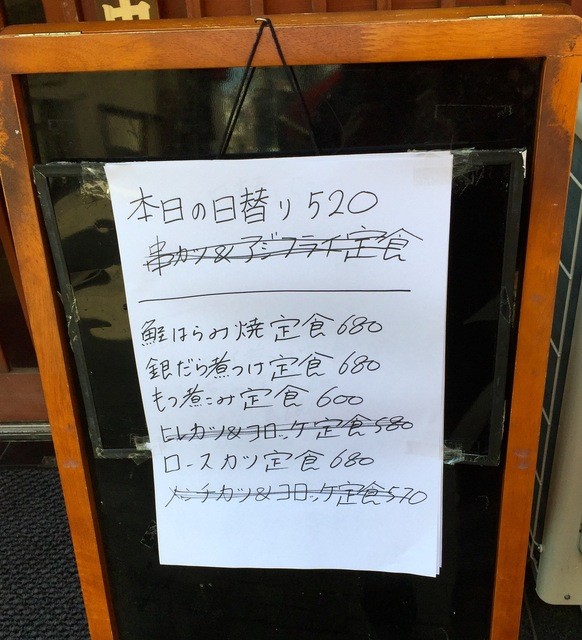 中
本日の日替り 520
串カツ&アジフライ定食
鮭はらみ焼定食 680
銀だら煮つけ定食 680
もつ煮こみ定食 600
ヒレカツ&コロッケ定食 580
ロースカツ定食 680
メンチカツ&コロッケ定食 570